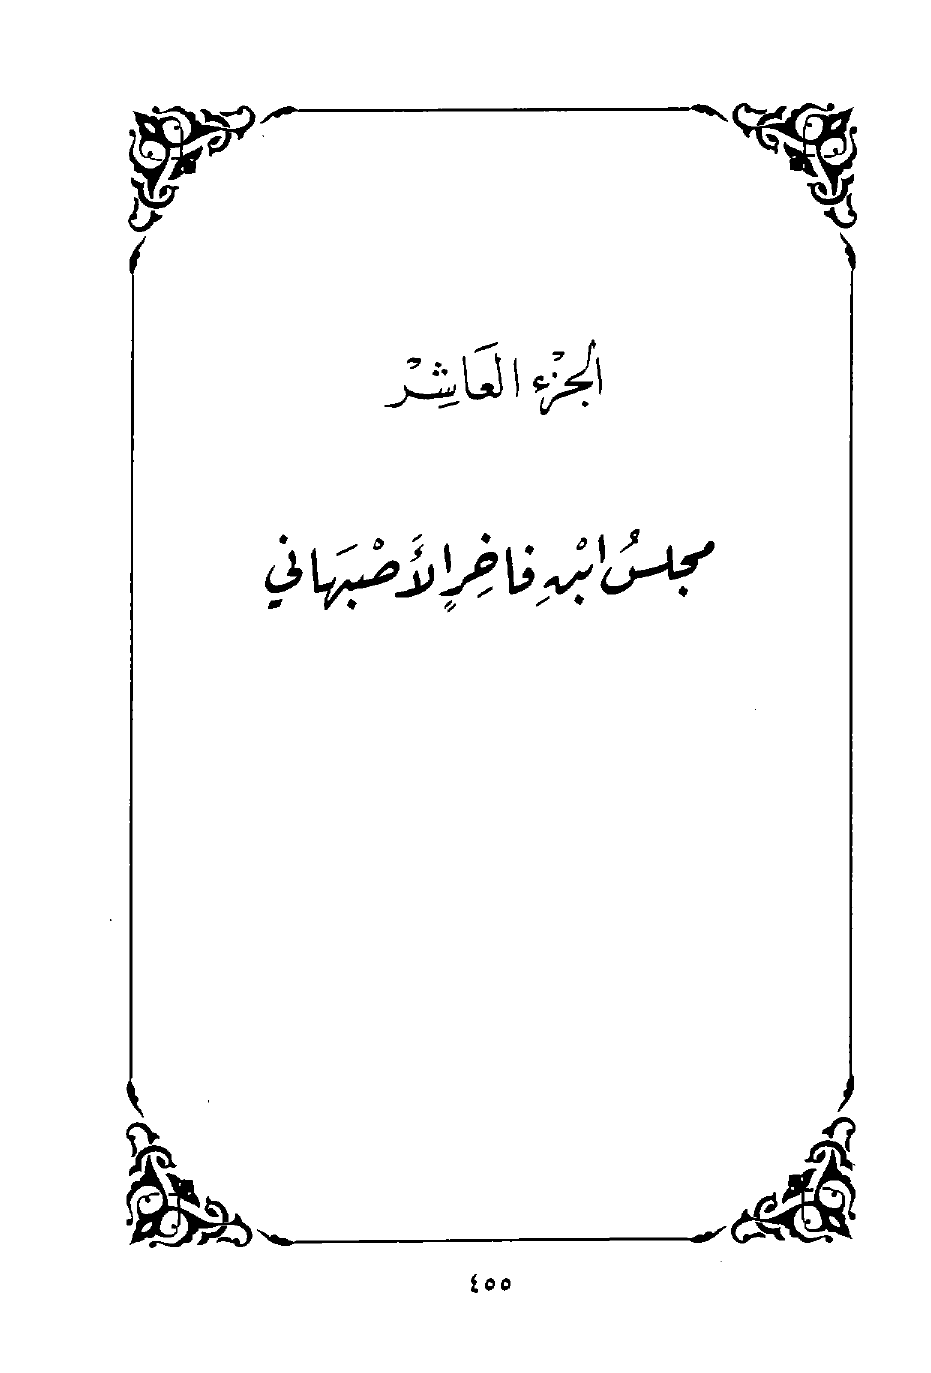 الجزْء العَاشِرْ
مجلسُ ابْنِ فاخِرٍ الأَصْبَهاني
٤٥٥